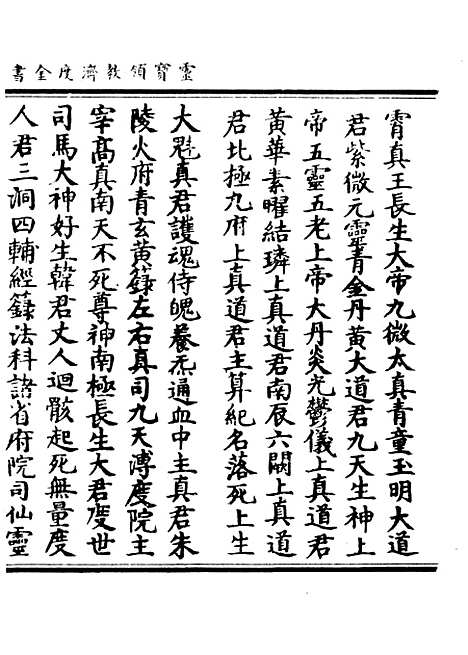 靈寳領教濟度全書
霄真王長生大帝九微太真青童玉明大道
君紫微元靈青金丹黃大道君九天生神上
帝五靈五老上帝大丹炎光鬱儀上真道君
黃華素曜結璘上真道君南辰六閼上真道
君北極九府上真道君主算紀名落死上生
大魁真君護魂侍魄養炁通血中主真君朱
陵火府青玄黃籙左右真司九天溥度院主
宰高真南天不死尊神南極長生大君度世
司馬大神好生韓君丈人迴骸起死無量度
人君三洞四輔經籙法科諸省府院司仙靈